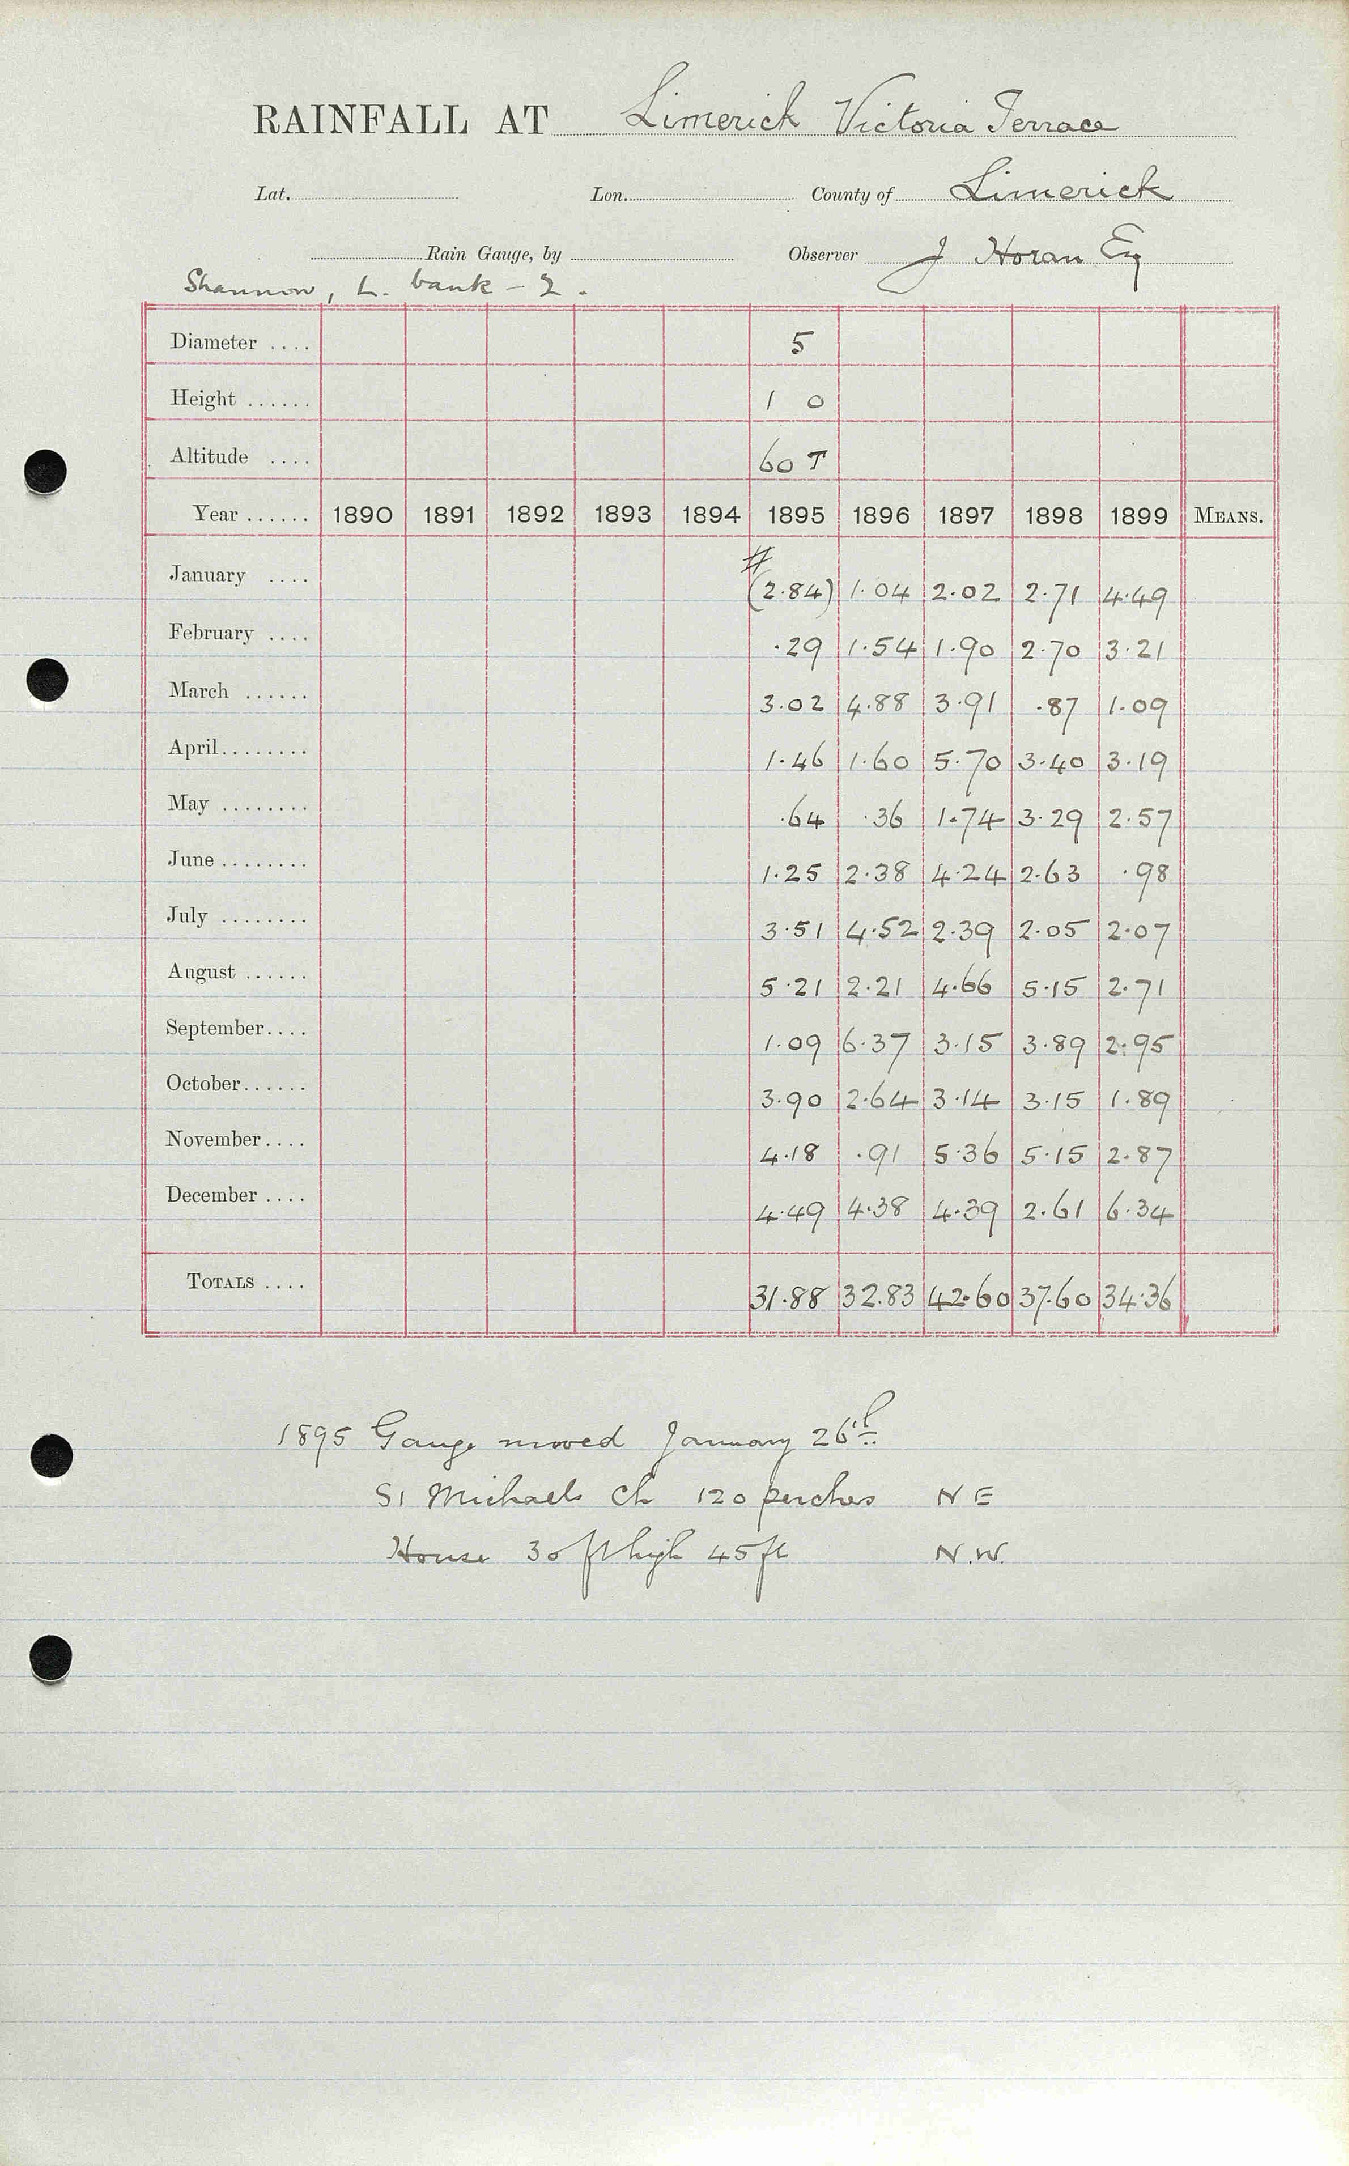 RAINFALL AT Limerick Victoria Terrace
Lat. Lon. County of Limerick
Rain Gauge, by Observer J Horan Esq
Shannon, L. bank - 2.
Diameter .... 5
Height ...... 1 0
Altitude .... 60 T
Year ...... 1890 1891 1892 1893 1894 1895 1896 1897 1898 1899 MEANS.
#
January .... (2.84) 1.04 2.02 2.71 4.49
February .... .29 1.54 1.90 2.70 3.21
March ...... 3.02 4.88 3.91 .87 1.09
April........ 1.46 1.60 5.70 3.40 3.19
May ........ .64 .36 1.74 3.29 2.57
June ........ 1.25 2.38 4.24 2.63 .98
July ........ 3.51 4.52 2.39 2.05 2.07
August ...... 5.21 2.21 4.66 5.15 2.71
September.... 1.09 6.37 3.15 3.89 2.95
October...... 3.90 2.64 3.14 3.15 1.89
November.... 4.18 .91 5.36 5.15 2.87
December .... 4.49 4.38 4.39 2.61 6.34
TOTALS .... 31.88 32.83 42.60 37.60 34.36
1895 Gauge moved January 26th
St Michaels Ch 120 perches N E
House 30 ft high 45 ft N.W.